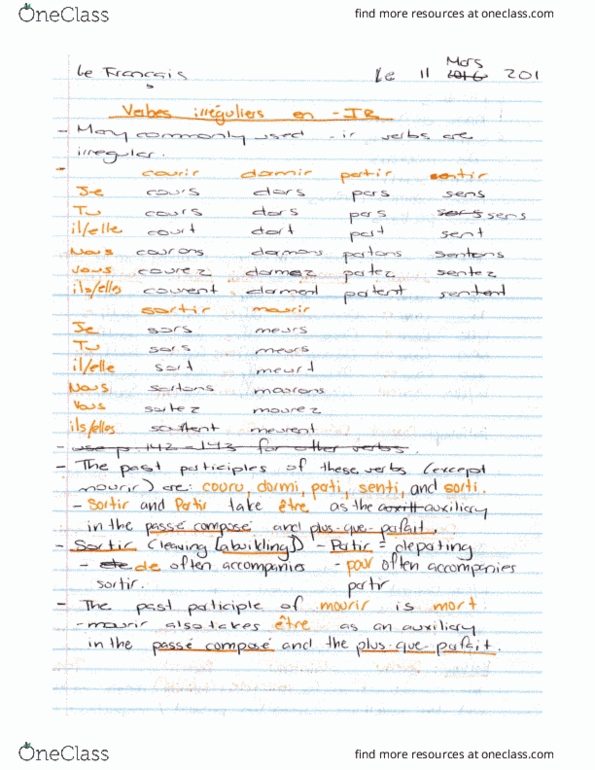 OneClass find more resources at oneclass.com
Mars
Le Français Le 11 2016 201
Verbes irréguliers en -IR
- Many commonly used -ir verbs are
irregular.
- courir dormir partir sentir
Je cours dors pars sens
Tu cours dors pars sors sens
il/elle court dort part sent
Nous courons dormons partons sentons
Vous courez dormez partez sentez
ils/elles courent dorment partent sentent
sortir mourir
Je sors meurs
Tu sors meurs
il/elle sort meurt
Nous sortons mourons
Vous sortez mourez
ils/elles sortent meurent
- use p. 142 - 143 for other verbs.
- The past participles of these verbs (except
mourir) are: couru, dormi, pati, senti, and sorti.
- Sortir and Partir take être as the auxill auxiliary
in the passé composé and plus-que-parfait.
- Sortir (leaving [a building]) - Partir = departing
- de often accompanies - pour often accompanies
sortir. partir
- The past participle of mourir is mort
- mourir also takes être as an auxiliary
in the passé composé and the plus-que-parfait.
OneClass find more resources at oneclass.com